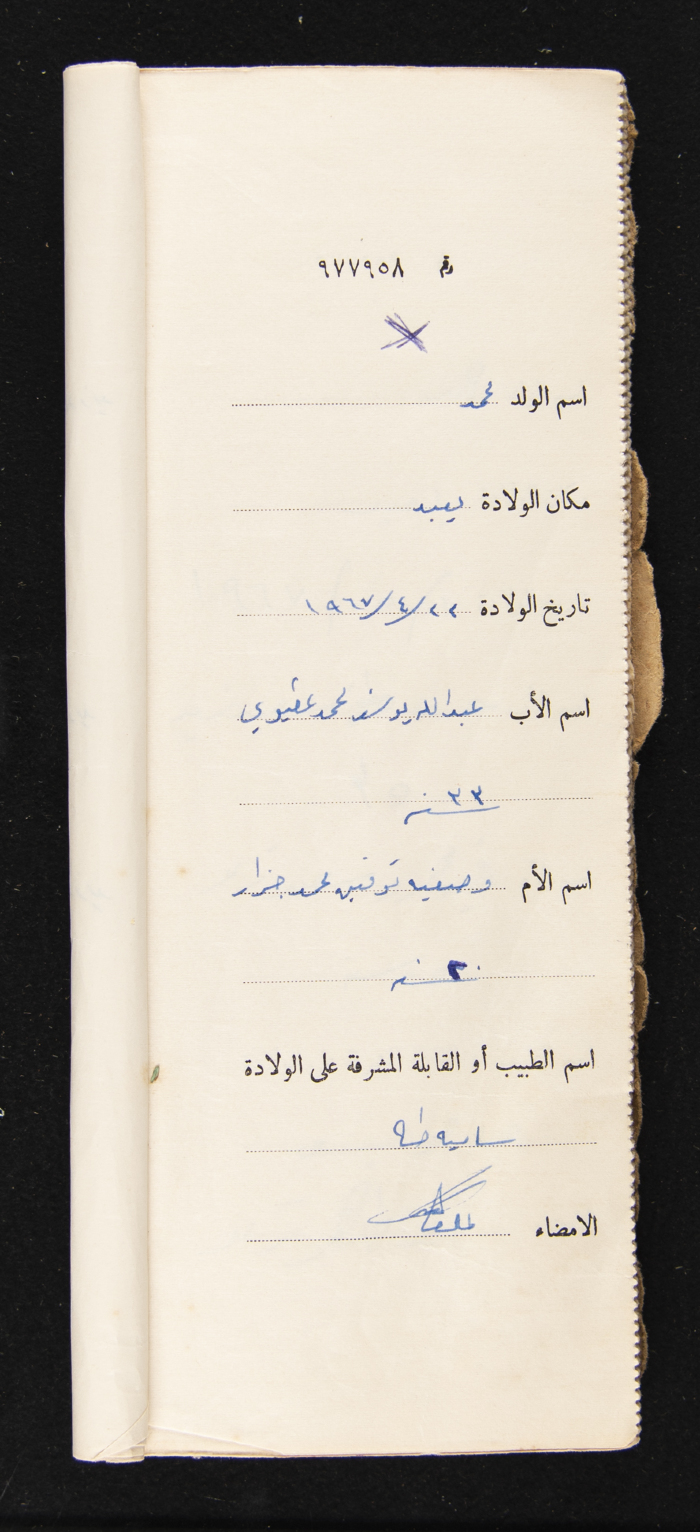 رقم ٩٧٧٩٥٨
اسم الولد محمد
مكان الولادة يعبد
تاريخ الولادة ٢٢/٤/١٩٦٧
اسم الأب عبد الله يوسف محمد
٣٣ سنه
اسم الأم وصفيه توفيق محمد جرار
٢٠ سنه
اسم الطبيب أو القابلة المشرفة على الولادة
ساميه طه
الامضاء